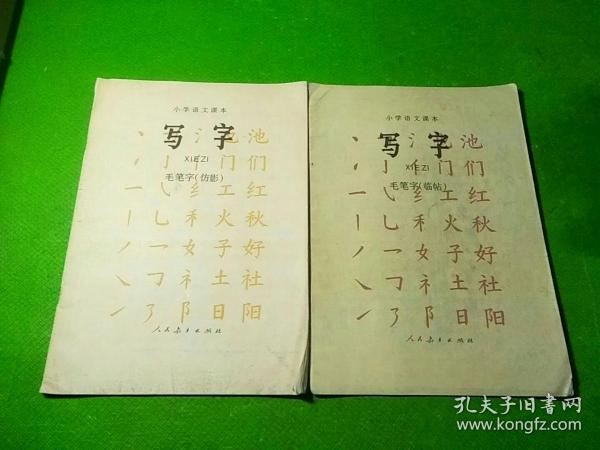 小学语文课本
写字
XIEZI
毛笔字(仿影)
丶 氵 也 池
亻 门 们
一 乀 纟 工 红
丨 乚 禾 火 秋
丿 乛 女 子 好
㇏ 𠃌 礻 土 社
㇀ 了 阝 日 阳
人民教育出版社
小学语文课本
写字
XIEZI
毛笔字(临帖)
丶 氵 也 池
亻 门 们
一 乀 纟 工 红
丨 乚 禾 火 秋
丿 乛 女 子 好
㇏ 𠃌 礻 土 社
㇀ 阝 日 阳
人民教育出版社
孔夫子旧书网
www.kongfz.com